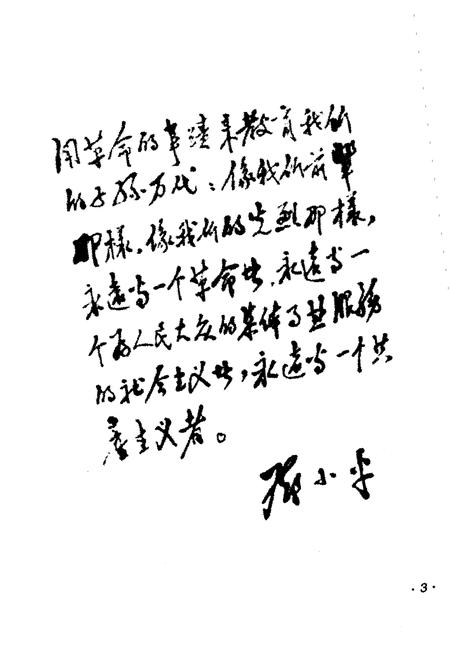 用革命的事蹟来教育我们
的子孙万代：像我们前辈
那樣，像我们的先烈那樣，
永远当一个革命者，永远当一
个为人民大众的集体事业服务
的社会主义者，永远当一个共
产主义者。
邓小平
·3·